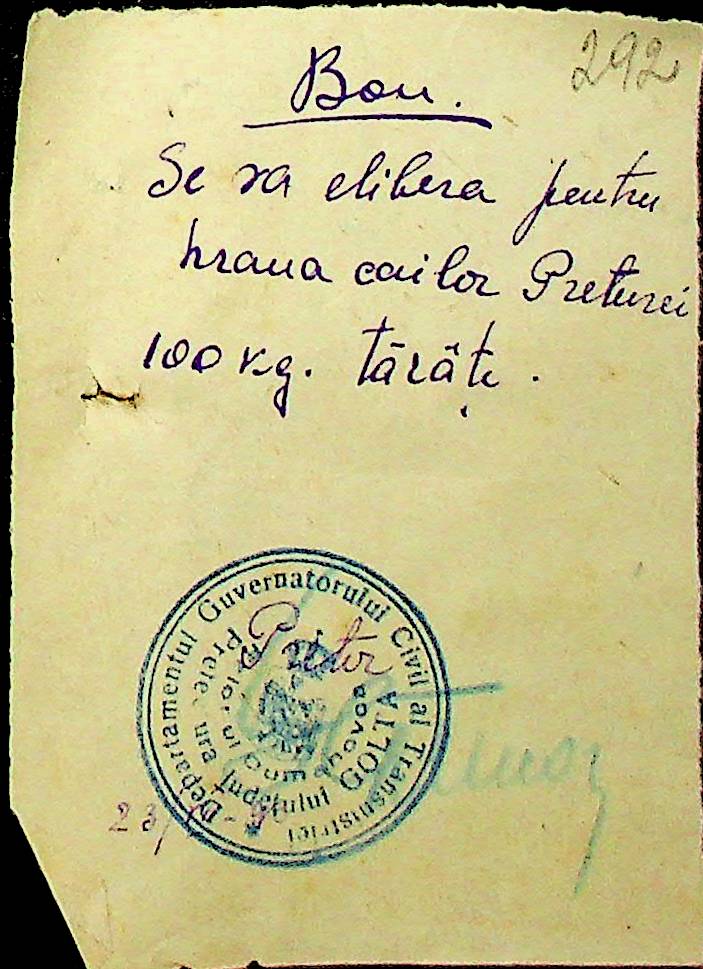 292
Bon.
Se va elibera pentru
hrana cailor Preturei
100 kg. tărâțe.
Pretor
Departamentul Guvernatorului Civil al Transnistriei
Județului GOLTA
23/